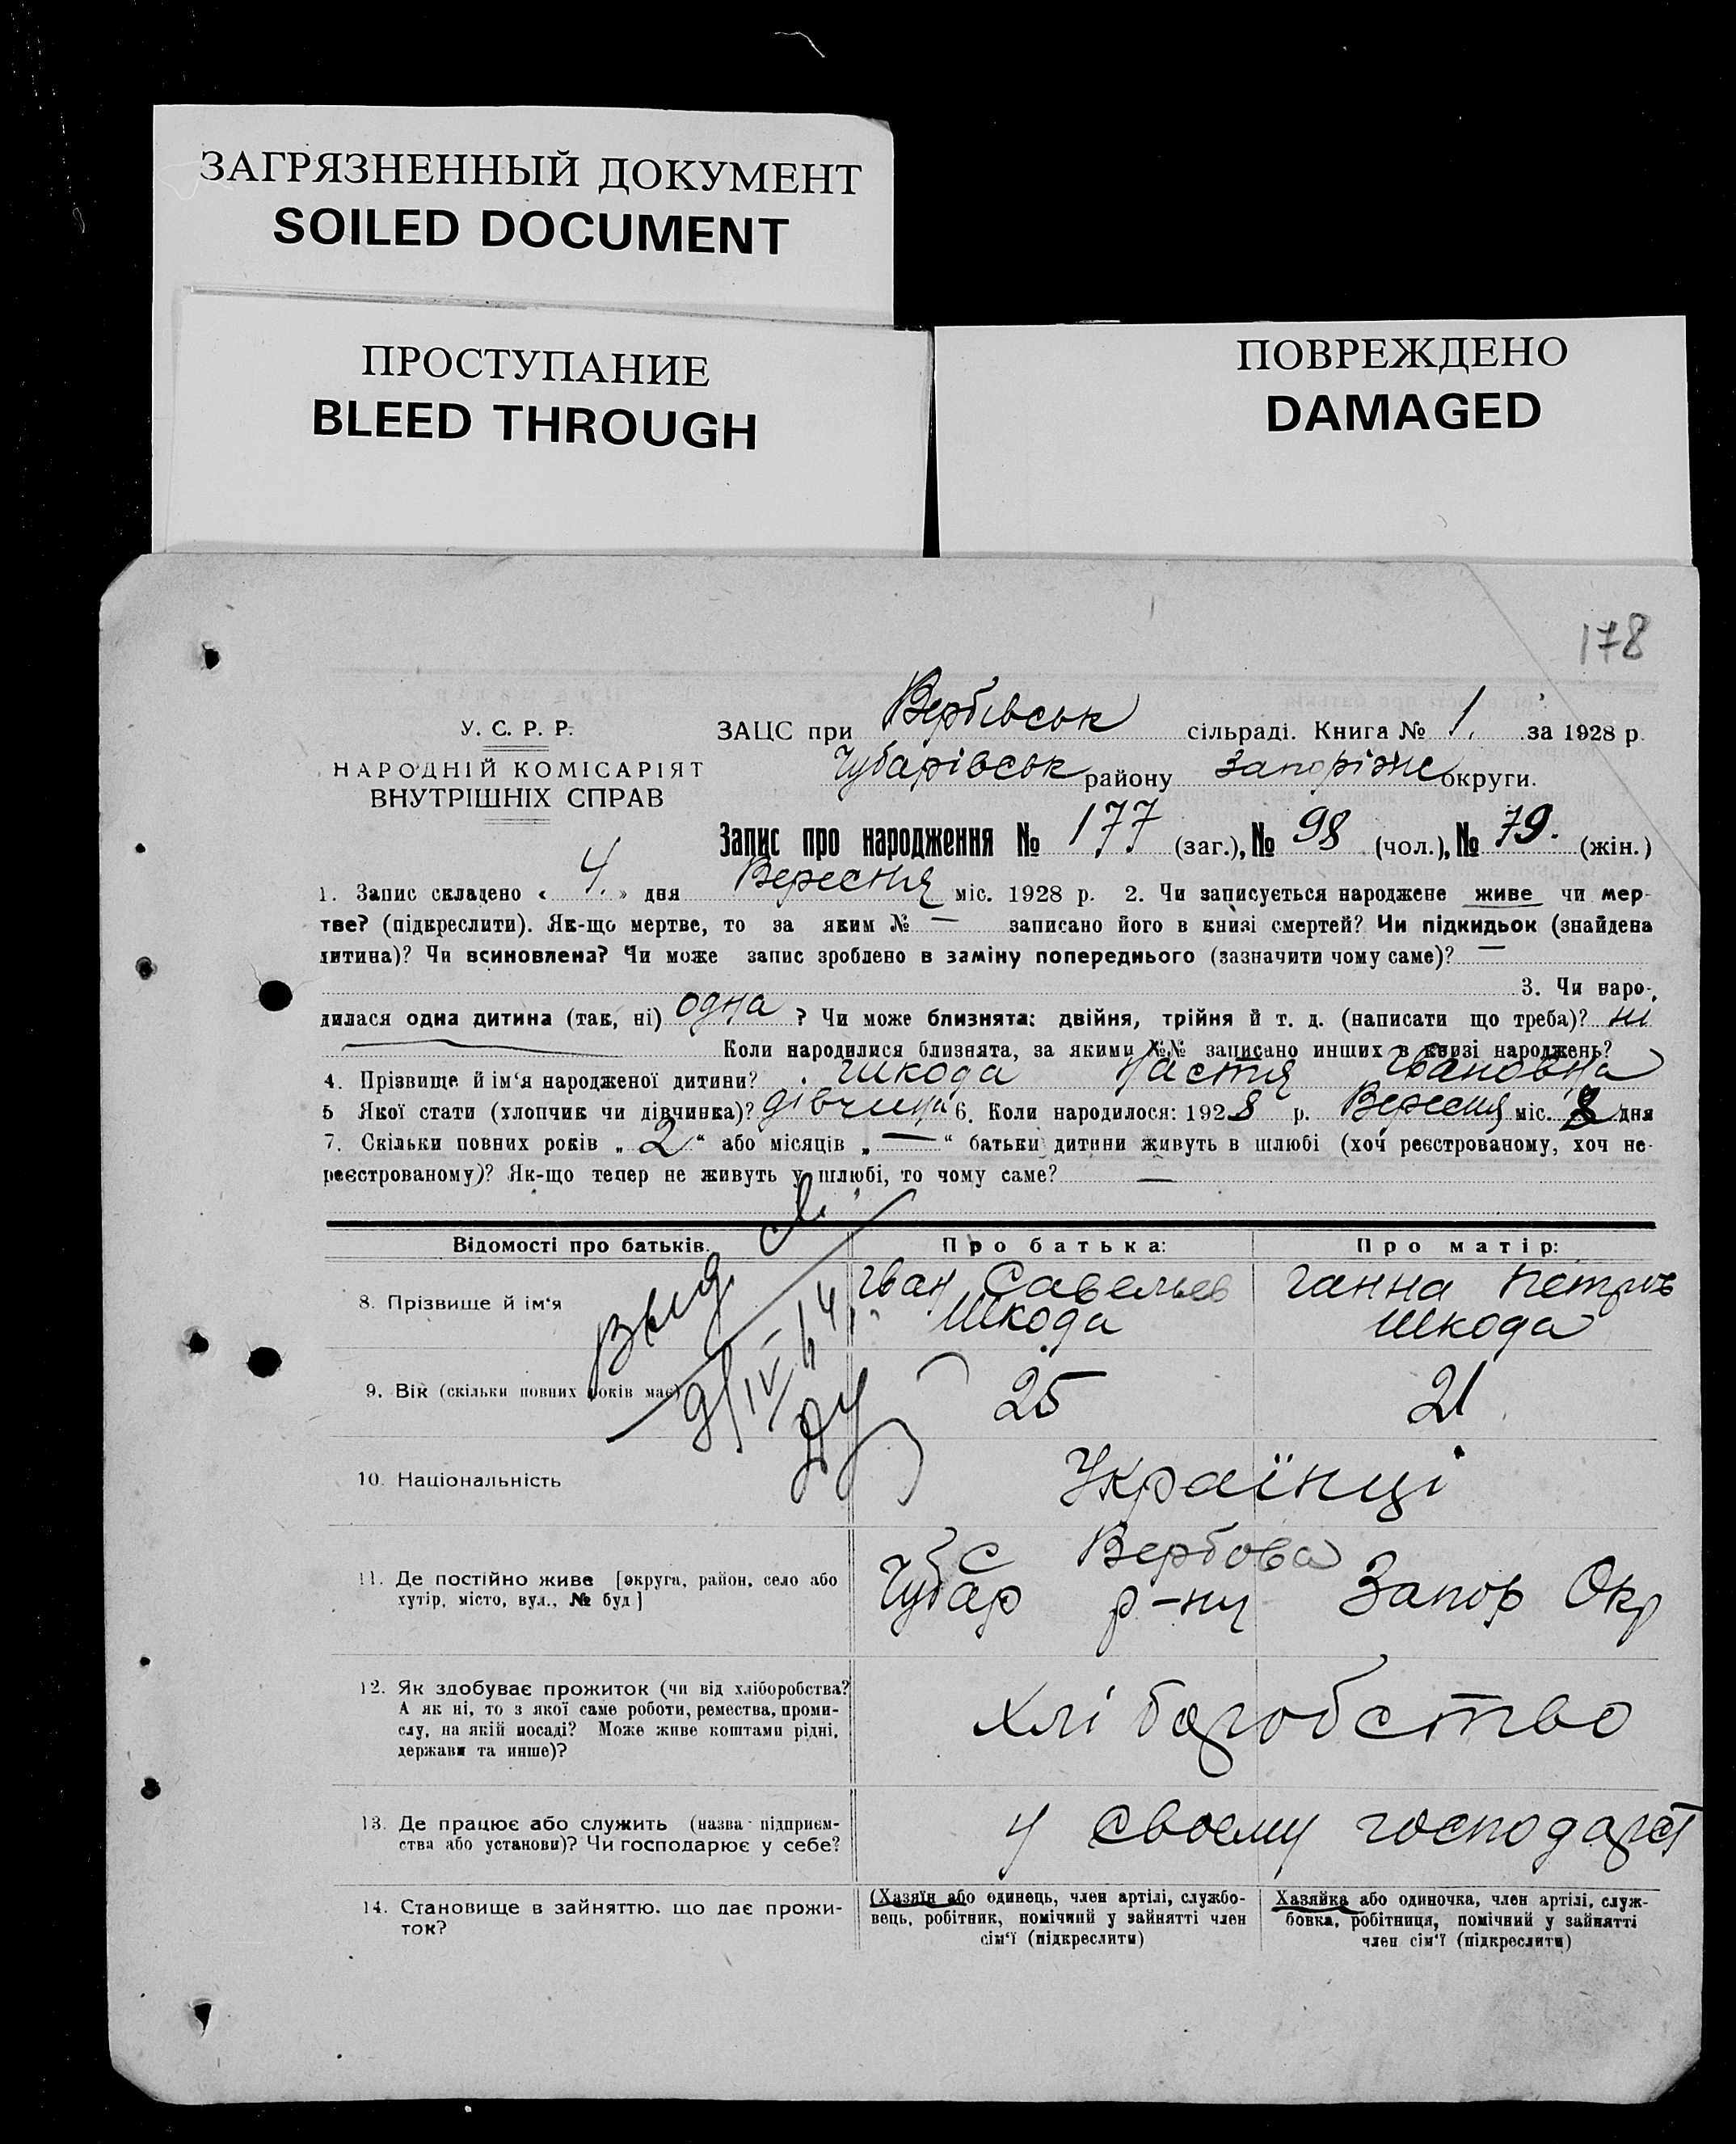 ЗАГРЯЗНЕННЫЙ ДОКУМЕНТ
SOILED DOCUMENT
ПРОСТУПАНИЕ
BLEED THROUGH
ПОВРЕЖДЕНО
DAMAGED
178
У. С. Р. Р.
НАРОДНІЙ КОМІСАРІЯТ
ВНУТРІШНІХ СПРАВ
ЗАЦС при Вербівськ сільраді. Книга № 1. за 1928 р.
Чубарівськ району Запоріжс округи.
Запис про народження № 177 (заг.), № 98 (чол.), № 79. (жін.)
1. Запис складено « 4. » дня Вересня міс. 1928 р. 2. Чи записується народжене живе чи мер-
тве? (підкреслити). Як-що мертве, то за яким № — записано його в книзі смертей? Чи підкидьок (знайдена
дитина)? Чи всиновлена? Чи може запис зроблено в заміну попереднього (зазначити чому саме)? —
3. Чи наро-
дилася одна дитина (так, ні) одна ? Чи може близнята: двійня, трійня й т. д. (написати що треба)? ні
Коли народилися близнята, за якими №№ записано инших в книзі народжень?
4. Прізвище й ім‘я народженої дитини? Шкода Настя Івановна
5 Якої стати (хлопчик чи дівчинка)? дівчина 6. Коли народилося: 1928 р. Вересня міс. дня
7. Скільки повних років „ 2 “ або місяців „ — “ батьки дитини живуть в шлюбі (хоч реєстрованому, хоч не-
реєстрованому)? Як-що тепер не живуть у шлюбі, то чому саме? —
Відомості про батьків. Про батька: Про матір:
8. Прізвище й ім‘я Іван Савельев Ганна Петров
Шкода Шкода
9. Вік (скільки повних років має) 25 21
10. Національність Українці
11. Де постійно живе [округа, район, село або
хутір, місто, вул., № буд]
С Вербова
Чубар р-ну Запор Окр
12. Як здобуває прожиток (чи від хліборобства?
А як ні, то з якої саме роботи, ремества, проми-
слу, на якій посаді? Може живе коштами рідні,
держави та инше)?
хліборобство
13. Де працює або служить (назва підприєм-
ства або установи)? Чи господарює у себе?
у своєму господарст
14. Становище в зайняттю, що дає прожи-
ток?
(Хазяїн або одинець, член артілі, службо-
вець, робітник, помічний у зайнятті член
сім‘ї (підкреслити)
Хазяйка або одиночка, член артілі, служ-
бовка, робітниця, помічний у зайнятті
член сім‘ї (підкреслити)